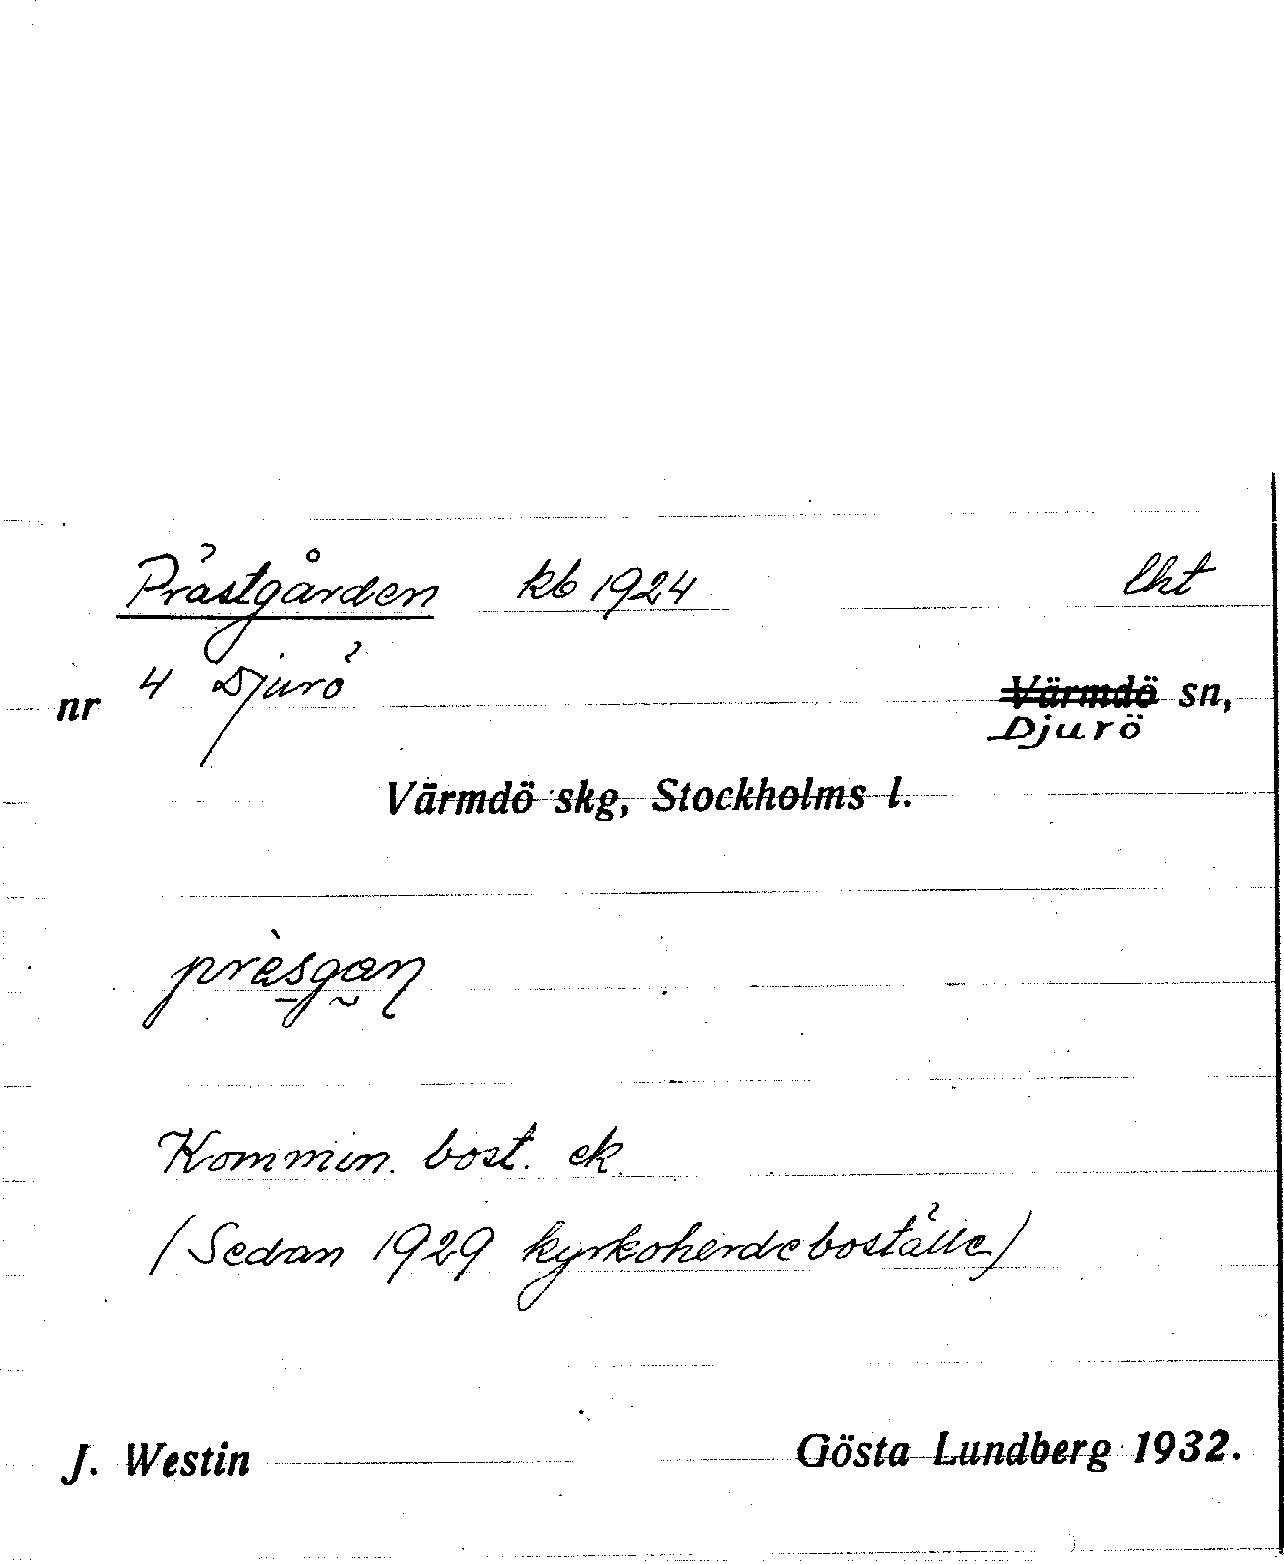 Prästgården kb 1924 lht
nr 4 Djurö Värmdö sn,
Djurö
Värmdö skg, Stockholms l.
Kommin. bost. ek.
(Sedan 1929 kyrkoherdeboställe)
J. Westin Gösta Lundberg 1932.